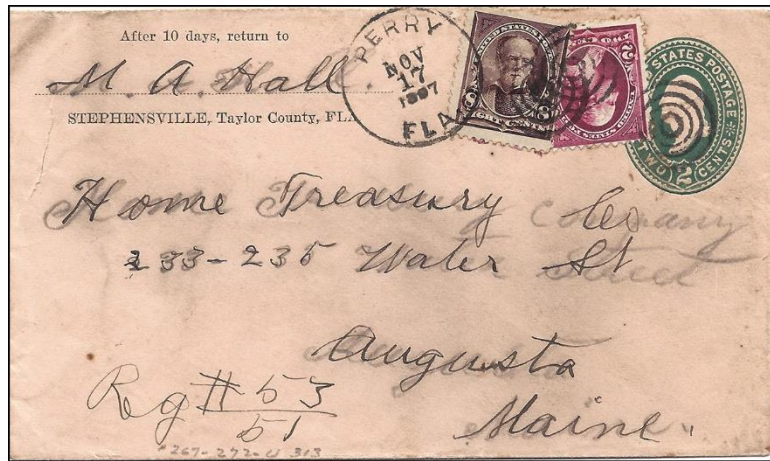 After 10 days, return to
M. A. Hall.
STEPHENSVILLE, Taylor County, FLA
PERRY
NOV
17
1897
FLA
UNITED STATES
EIGHT CENTS
2
STATES POSTAGE
TWO 2 CENTS
Home Treasury Co
Company
233-235 Water St
Street
Augusta
Maine.
Rg # 53
51
*267-272-U 313